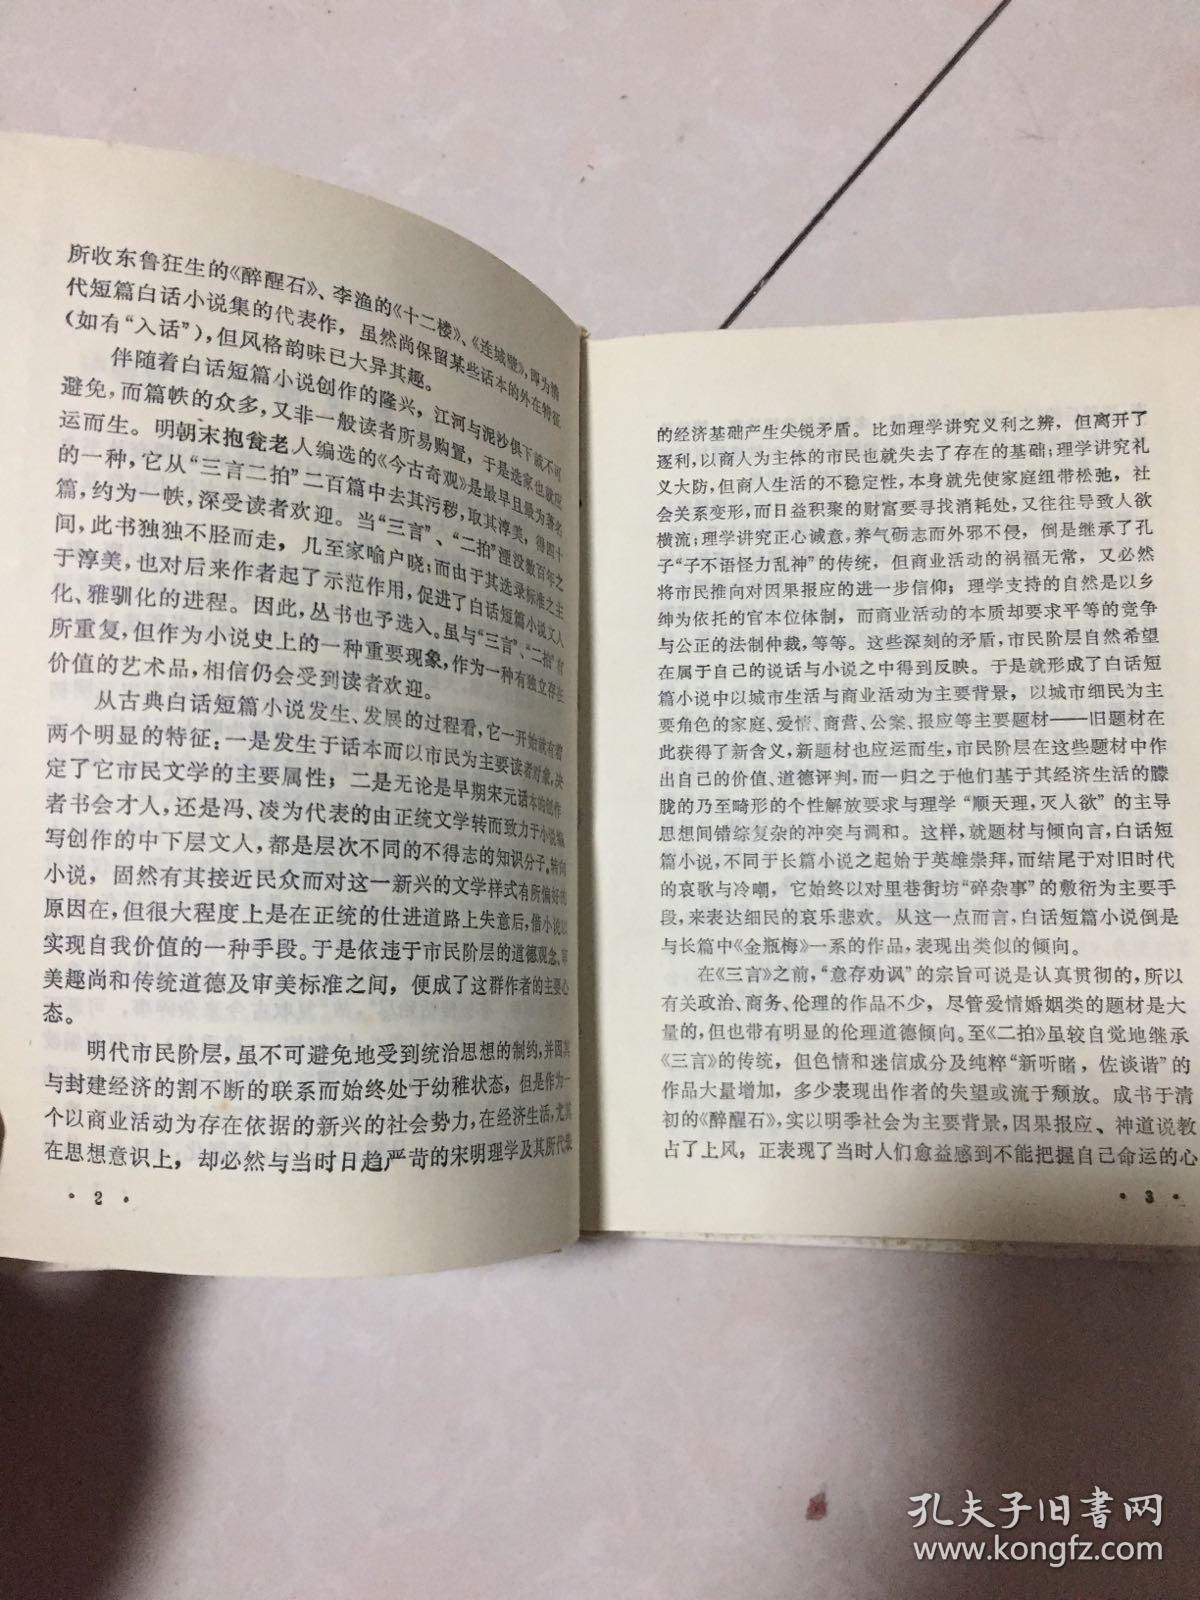 所收东鲁狂生的《醉醒石》、李渔的《十二楼》、《连城璧》,即为清
代短篇白话小说集的代表作，虽然尚保留某些话本的外在特征
(如有“入话”),但风格韵味已大异其趣。
伴随着白话短篇小说创作的隆兴，江河与泥沙俱下诚不可
避免,而篇帙的众多,又非一般读者所易购置,于是选家也就应
运而生。明朝末抱瓮老人编选的《今古奇观》是最早且最为著名
的一种,它从“三言二拍”二百篇中去其污秽,取其淳美,得四十
篇,约为一帙,深受读者欢迎。当“三言”、“二拍”湮没数百年之
间,此书独独不胫而走，几至家喻户晓;而由于其选录标准之主
于淳美,也对后来作者起了示范作用,促进了白话短篇小说文人
化、雅驯化的进程。因此,丛书也予选入。虽与“三言”、“二拍”有
所重复,但作为小说史上的一种重要现象,作为一种有独立存在
价值的艺术品,相信仍会受到读者欢迎。
从古典白话短篇小说发生、发展的过程看,它一开始就有着
两个明显的特征:一是发生于话本而以市民为主要读者对象,决
定了它市民文学的主要属性；二是无论是早期宋元话本的创作
者书会才人,还是冯、凌为代表的由正统文学转而致力于小说编
写创作的中下层文人，都是层次不同的不得志的知识分子。转向
小说，固然有其接近民众而对这一新兴的文学样式有所偏好的
原因在,但很大程度上是在正统的仕进道路上失意后,借小说以
实现自我价值的一种手段。于是依违于市民阶层的道德观念、审
美趣尚和传统道德及审美标准之间，便成了这群作者的主要心
态。
明代市民阶层,虽不可避免地受到统治思想的制约,并因其
与封建经济的割不断的联系而始终处于幼稚状态，但是作为一
个以商业活动为存在依据的新兴的社会势力,在经济生活,尤其
在思想意识上，却必然与当时日趋严苛的宋明理学及其所代表
· 2 ·
的经济基础产生尖锐矛盾。比如理学讲究义利之辨，但离开了
逐利,以商人为主体的市民也就失去了存在的基础;理学讲究礼
义大防,但商人生活的不稳定性,本身就先使家庭纽带松弛，社
会关系变形,而日益积聚的财富要寻找消耗处,又往往导致人欲
横流;理学讲究正心诚意,养气砺志而外邪不侵，倒是继承了孔
子“子不语怪力乱神”的传统，但商业活动的祸福无常，又必然
将市民推向对因果报应的进一步信仰；理学支持的自然是以乡
绅为依托的官本位体制，而商业活动的本质却要求平等的竞争
与公正的法制仲裁,等等。这些深刻的矛盾,市民阶层自然希望
在属于自己的说话与小说之中得到反映。于是就形成了白话短
篇小说中以城市生活与商业活动为主要背景，以城市细民为主
要角色的家庭、爱情、商营、公案、报应等主要题材——旧题材在
此获得了新含义,新题材也应运而生,市民阶层在这些题材中作
出自己的价值、道德评判,而一归之于他们基于其经济生活的朦
胧的乃至畸形的个性解放要求与理学“顺天理,灭人欲”的主导
思想间错综复杂的冲突与调和。这样,就题材与倾向言,白话短
篇小说,不同于长篇小说之起始于英雄崇拜,而结尾于对旧时代
的哀歌与冷嘲，它始终以对里巷街坊“碎杂事”的敷衍为主要手
段,来表达细民的哀乐悲欢。从这一点而言,白话短篇小说倒是
与长篇中《金瓶梅》一系的作品,表现出类似的倾向。
在《三言》之前,“意存劝讽”的宗旨可说是认真贯彻的,所以
有关政治、商务、伦理的作品不少，尽管爱情婚姻类的题材是大
量的,但也带有明显的伦理道德倾向。至《二拍》虽较自觉地继承
《三言》的传统，但色情和迷信成分及纯粹“新听睹，佐谈谐”的
作品大量增加，多少表现出作者的失望或流于颓放。成书于清
初的《醉醒石》,实以明季社会为主要背景,因果报应、神道说教
占了上风，正表现了当时人们愈益感到不能把握自己命运的心
· 3 ·
孔夫子旧书网
www.kongfz.com